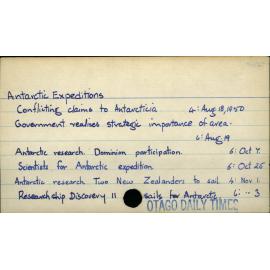 Antarctic Expeditions
Conflicting claims to Antarcticia 4: Aug 18, 1950
Government realises strategic importance of area.
6: Aug 19
Antarctic research. Dominion participation. 6: Oct 7.
Scientists for Antarctic expedition 6: Oct 25
Antarctic research. Two New Zealanders to sail. 4: Nov 1.
Research ship Discovery II sails for Antarctic 6: " 3
OTAGO DAILY TIMES